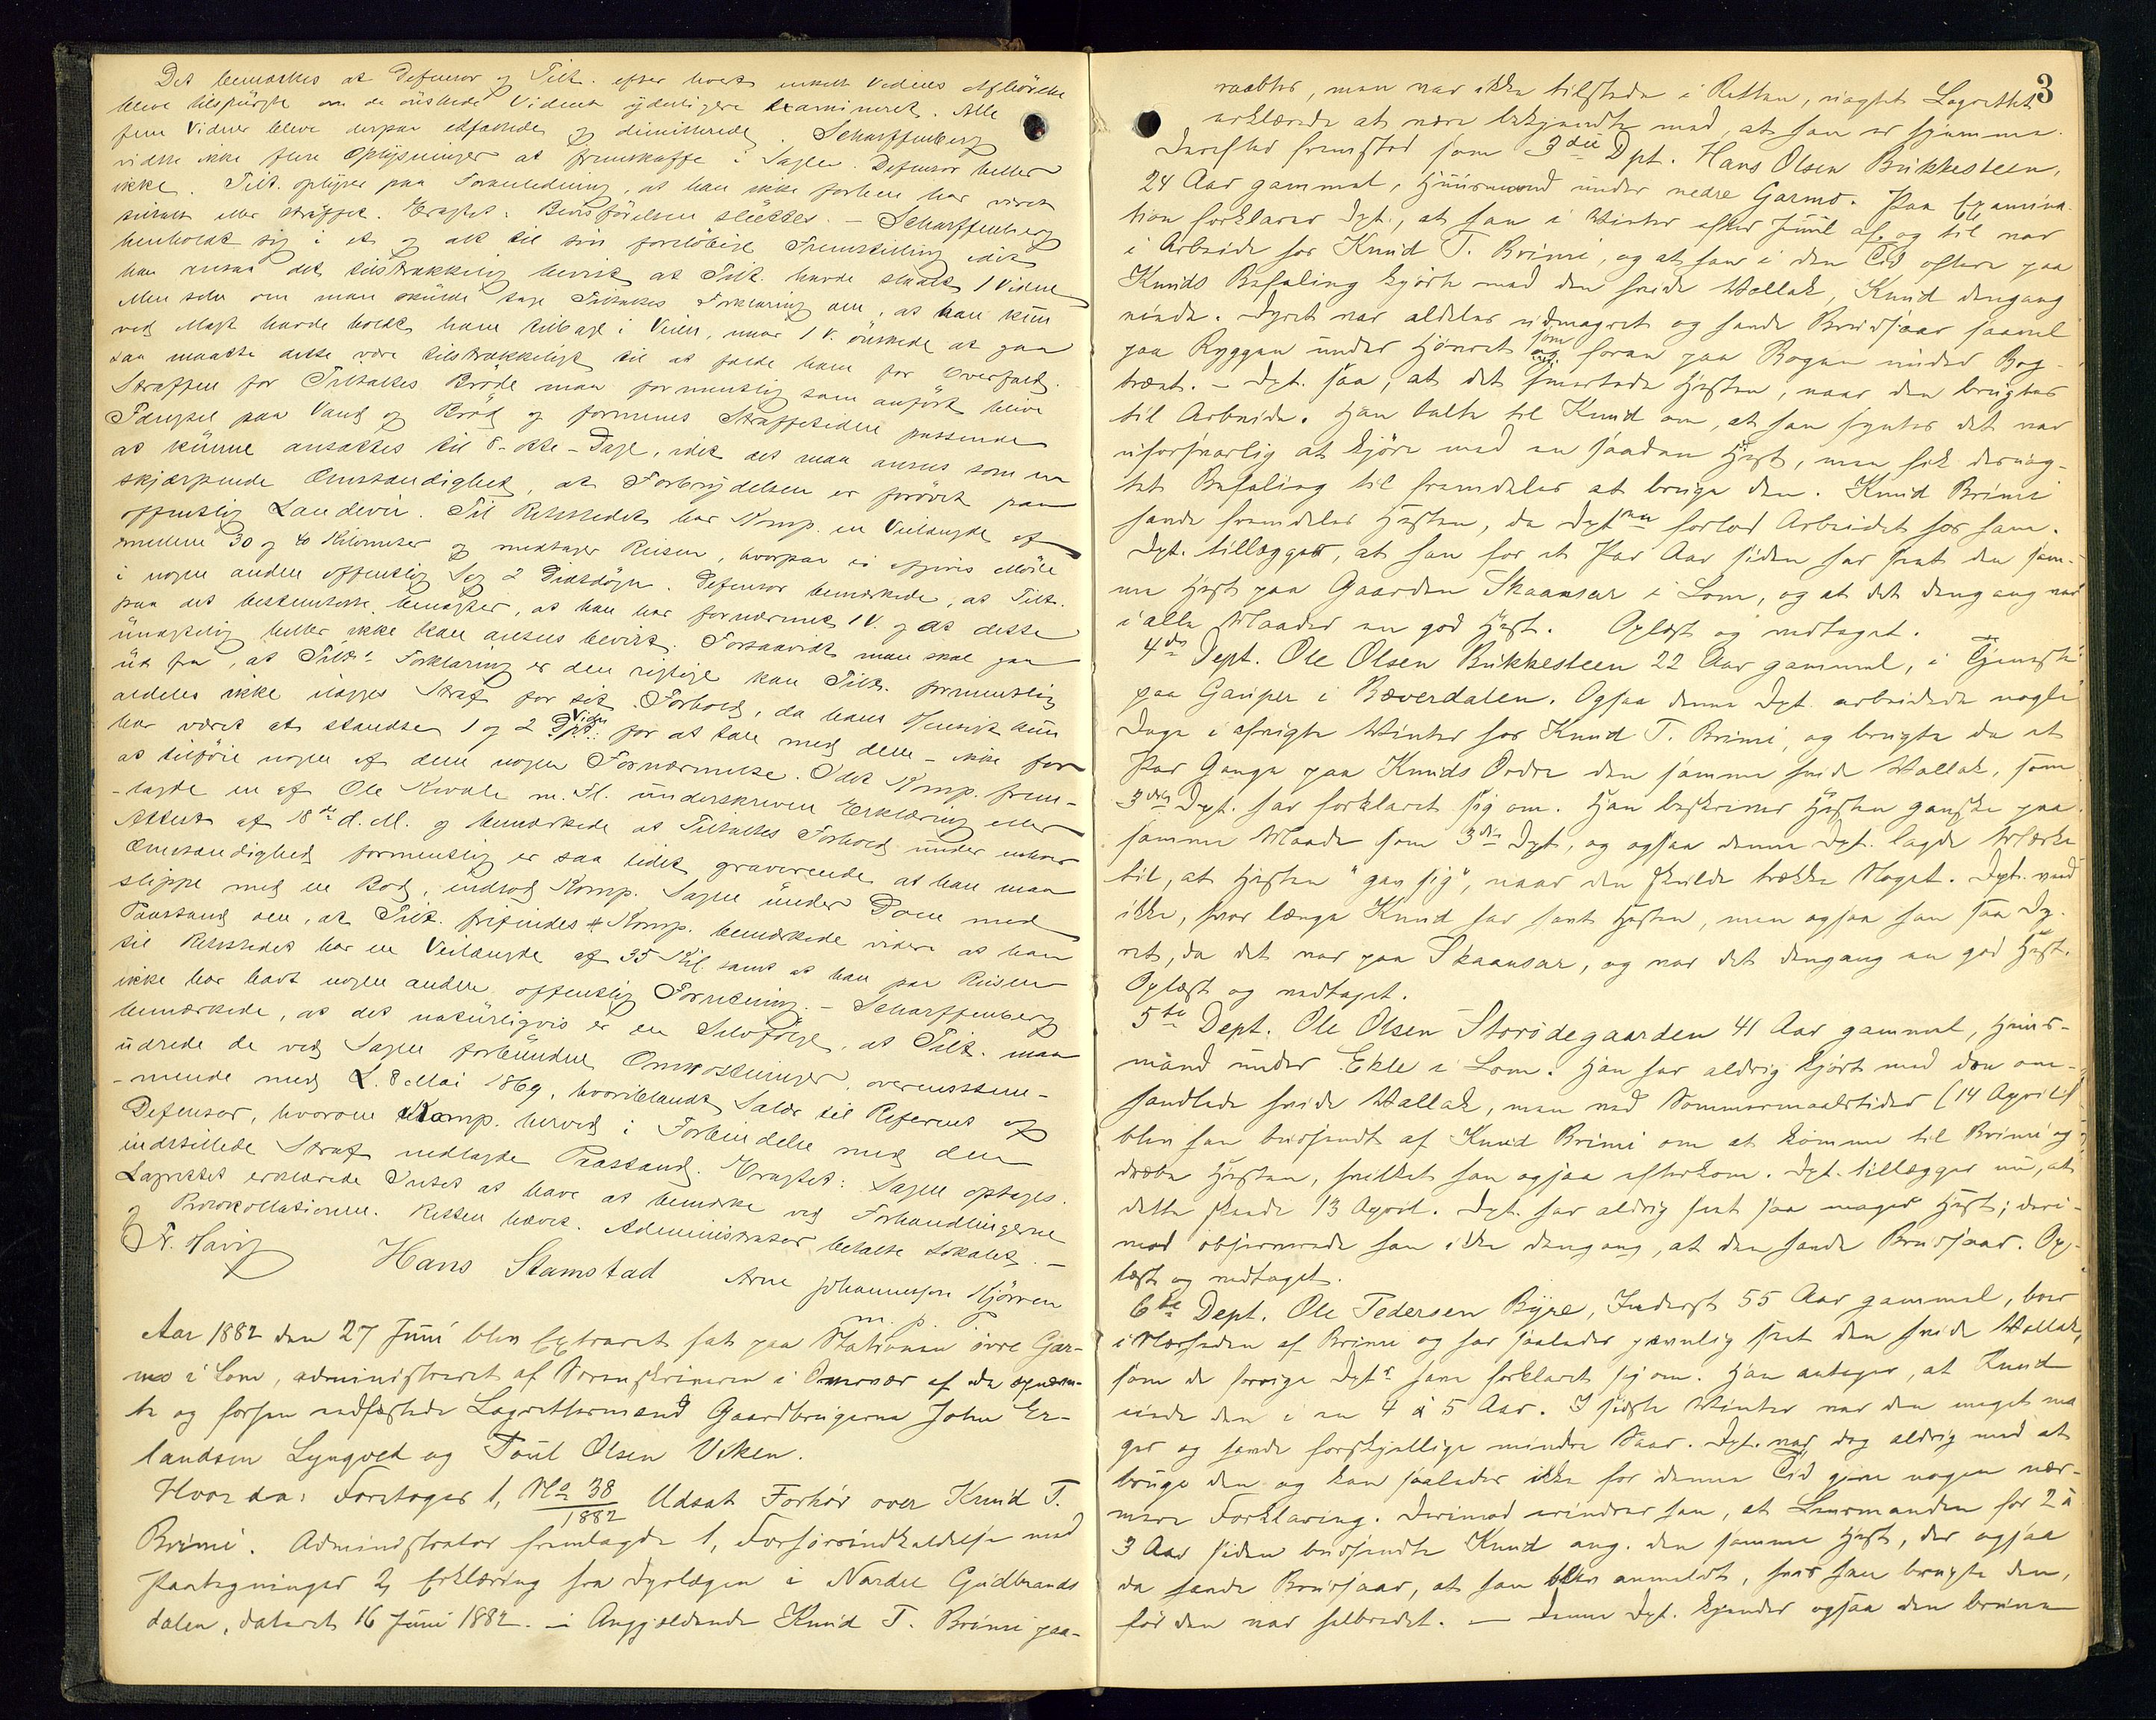 Det bemærkes at Defensor og Tilt. efter hvert enkelt Vidnes Afhörelse
bleve tilspürgte om de önskede Vidnet yderligere examineret. Alle
fem Vidner bleve derpaa edfæstede og dimitterede. Scharffenberg
vidste ikke flere Oplysninger at fremskaffe i Sagen. Defensor heller
ikke. Tilt. oplyser paa Foranledning, at han ikke forhen har været
tiltalt eller straffet. Eragtet: Bevisförelsen slüttes. – Scharffenberg
henholdt sig i et og alt til sin foreløbige Fremstilling idet
han ansaa det tilstrækkelig bevist at Tilt. havde slaaet 1 Vidne
Men selv om man skulde tage Tiltaltes Forklaring om, at han kun
ved Magt havde holdt ham tilbage i Veien, naar 1 V. önskede at gaa
saa maatte dette være tilstrækkeligt til at fælde ham for Overfald.
Straffen for Tiltaltes Bröde maa formentlig som anfört blive
Fængsel paa Vand og Bröd og formenes Straffetiden passende
at künne ansættes til 8 - otte - Dage, idet det maa ansees som en
skjærpende Omstændighed, at Forbrydelsen er forövet paa
offentlig Landevei. Til Retsstedet har Komp. en Veilængde af
mellem 30 og 40 Kilometer og medtager Reisen, hvorpaa ei opgives Möde
i nogen anden offentlig Sag 2 Diætdögn. Defensor bemærkede, at Tilt.
paa det bestemteste benægter, at han har fornærmet 1 V. og at dette
ünægtelig heller ikke kan ansees bevist. Forsaavidt man skal gaa
ud fra, at Tilts. Forklaring er den rigtige kan Tilt. formentlig
aldeles ikke ilægges Straf for sit Forhold, da hans Hensigt kun
har været at standse 1 og 2 Vidne for at tale med dem – ikke for
at tilföie nogen af dem nogen Fornærmelse. Idet Komp. frem-
-lagde en af Ole Kvale m. Fl. ünderskreven Erklæring eller
Attest af 18de d. M. og bemærkede at Tiltaltes Forhold ünder enhver
Omstændighed formentlig er saa lidet graverende at han maa
slippe med en Bod, indlod Komp. Sagen ünder Dom med
Paastand om, at Tilt. frifindes # Komp. bemærkede videre at han
til Retsstedet har en Veilængde af 35 Kil. samt at han paa Reisen
ikke har havt nogen anden offentlig Forretning. – Scharffenberg
bemærkede, at det natürligvis er en Selvfölge, at Tilt. maa
üdrede de ved Sagen forbündne Omkostninger, overensstem-
-mende med L. 8 Mai 1869, hvoriblandt Salær til Referent og
Defensor, hvorom Komp. herved i Forbindelse med den
indstillede Straf nedlagde Paastand. Eragtet: Sagen optages.
Lagrettet erklærede Intet at have at bemærke ved Forhandlingerne
og Protokollationen. Retten hævet. Administrator betalte Lokalet. –
Hans Stamstad Arne Johannesen Kjörren
m. p. P.
Aar 1882 den 27 Juni blev Extraret sat paa Stationen övre Gar-
mo i Lom, administreret af Sorenskriveren i Overvær af de opnævn-
te og forhen edfæstede Lagrettesmænd Gaardbrügerne John Er-
landsen Lyngved og Poul Olsen Viken.
Hvor da: Foretoges 1, No 38/1882 Udsat Forhör over Knud T.
Brimi. Administrator fremlagde 1, Forhörsindkaldelse med
Paategninger 2, Erklæring fra Dyrlægen i Nordre Gudbrands
dalen, dateret 16 Juni 1882. – Angjældende Knud T. Brimi paa-
3
raabtes, men var ikke tilstede i Retten, uagtet Lagrettet
erklærede at være bekjendte med, at han er hjemme.
Derefter fremstod som 3die Dpt. Hans Olsen Bükkesteen,
24 Aar gammel, Hüusmand ünder nedre Garmo. Paa Examina-
tion forklarer Dpt., at han i Vinter efter Juul af og til var
i Arbeide hos Knud T. Brimi, og at han i den Tid oftere paa
Knuds Befaling kjörte med den hvide Vallak, Knud dengang
eiede. Dyret var aldeles udmagret og havde Brudsaar saavel
paa Ryggen under Hövret som foran paa Bogen under Bog-
træet. – Dpt. saa, at det smertede Hesten, naar den brugtes
til Arbeide. Han talte til Knud om, at han syntes det var
uforsvarlig at kjöre med en saadan Hest, men fik deruag-
tet Befaling til fremdeles at bruge den. Knud Brimi
havde fremdeles Hesten, da Dpten forlod Arbeidet hos ham.
Dpt. tillægger, at han for et Par Aar siden har seet den sam-
me Hest paa Gaarden Skaansar i Lom, og at det dengang var
i alle Maader en god Hest. Oplæst og vedtaget.
4de Dept. Ole Olsen Bükkesteen 22 Aar gammel, i Tjeneste
paa Gaüper i Bæverdalen. Ogsaa denne Dpt. arbeidede nogle
Dage i afvigte Vinter hos Knud T. Brimi, og brugte da et
Par Gange paa Knuds Ordre den samme hvide Vallak, som
3die Dpt. har forklaret sig om. Han beskriver Hesten ganske paa
samme Maade som 3die Dpt, og ogsaa denne Dpt. lagde Mærke
til, at Hesten "gav sig", naar den skulde trække Noget. Dpt. ved
ikke, hvor længe Knud har havt Hesten, men ogsaa han saa Dy-
ret, da det var paa Skaansar, og var det dengang en god Hest.
Oplæst og vedtaget.
5te Dept. Ole Olsen Storödegaarden 41 Aar gammel, Hüus-
mand ünder Ekle i Lom. Han har aldrig kjört med den om-
handlede hvide Vallak, men ved Sommermaalstider (14 April)
blev han budsendt af Knud Brimi om at komme til Brimi og
dræbe Hesten, hvilket han ogsaa efterkom. Dpt. tillægger nu, at
dette skede 13 April. Dpt. har aldrig seet saa mager Hest; deri-
mod observerede han ikke dengang, at den havde Brudsaar. Op-
læst og vedtaget.
6te Dept. Ole Pedersen Byre, Inderst 55 Aar gammel, bor
i Nærheden af Brimi og har saaledes jævnlig seet den hvide Vallak,
som de forrige Dptr have forklaret sig om. Han antager, at Knud
eiede den i en 4 à 5 Aar. I sidste Vinter var den meget ma
ger og havde forskjellige mindre Saar. Dpt. var dog aldrig med at
bruge den og kan saaledes ikke for denne Tid give nogen nær-
mere Forklaring. Derimod erindrer han, at Lensmanden for 2 à
3 Aar siden budsendte Knud ang. den samme Hest, der ogsaa
da havde Brudsaar, at han blev anmeldt, hvis han brugte den,
för den var helbredet. – Denne Dpt. kjender ogsaa den brune